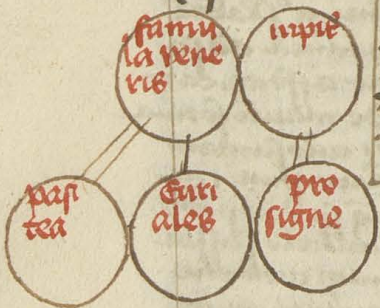 famu
la vene
ris
iupit᷑
pasi
tea
Euri
ales
pro
signe